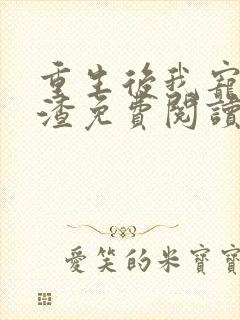 重生後我寵
渣免費閱讀
愛笑的米寶寶